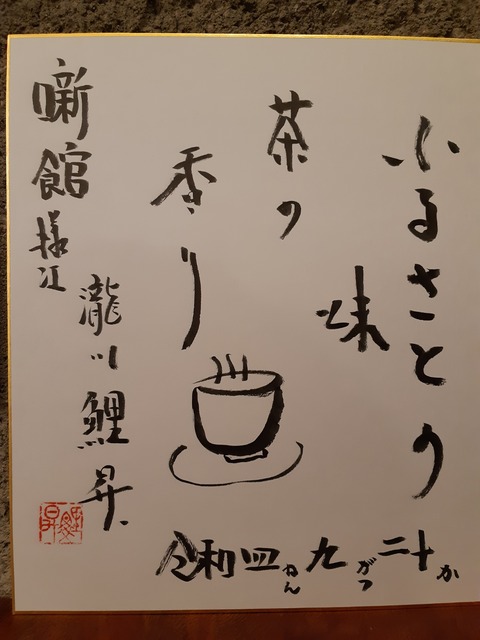 ふるさとの
味
茶の
香り
瀧川鯉昇
噺館様江
令和四ねん九がつ二十か